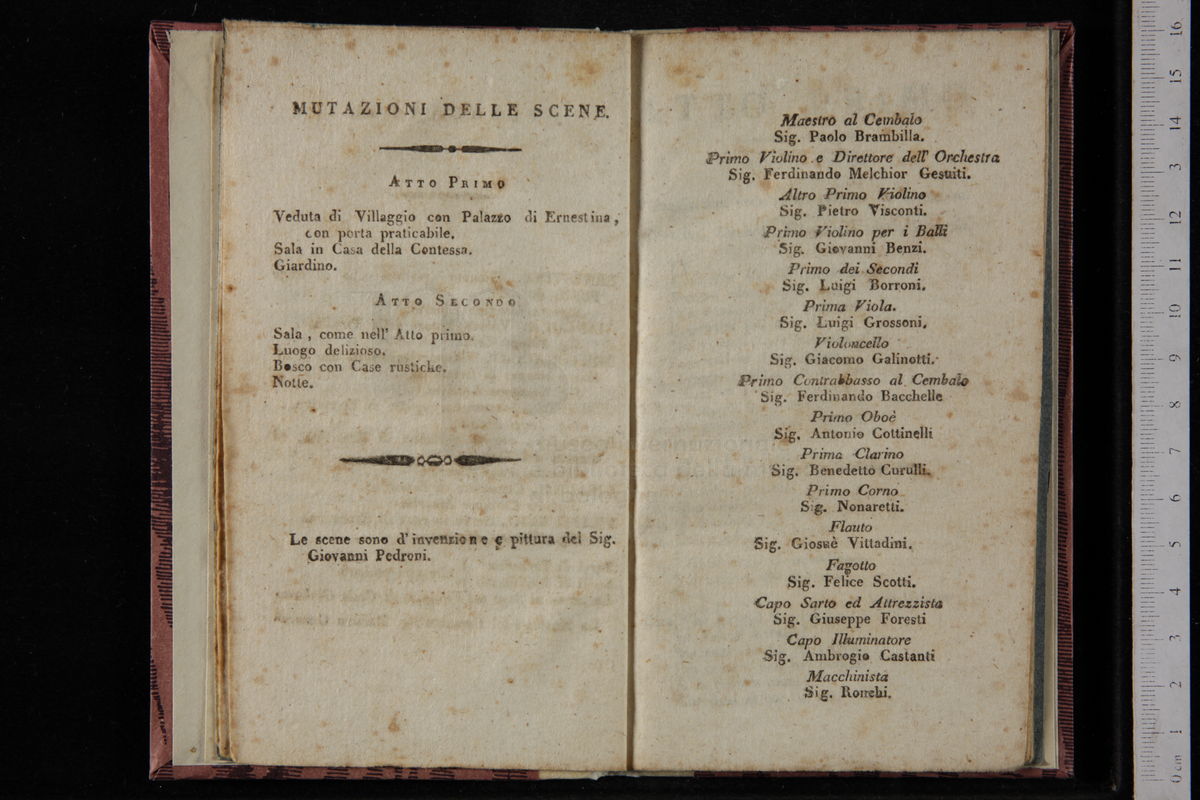 MUTAZIONI DELLE SCENE.
ATTO PRIMO
Veduta di Villaggio con Palazzo di Ernestina,
con porta praticabile.
Sala in Casa della Contessa.
Giardino.
ATTO SECONDO
Sala, come nell' Atto primo.
Luogo delizioso.
Bosco con Case rustiche.
Notte.
Le scene sono d'invenzione e pittura del Sig.
Giovanni Pedroni.
Maestro al Cembalo
Sig. Paolo Brambilla.
Primo Violino e Direttore dell' Orchestra
Sig. Ferdinando Melchior Gesuiti.
Altro Primo Violino
Sig. Pietro Visconti.
Primo Violino per i Balli
Sig. Giovanni Benzi.
Primo dei Secondi
Sig. Luigi Borroni.
Prima Viola.
Sig. Luigi Grossoni.
Violoncello
Sig. Giacomo Galinotti.
Primo Contrabbasso al Cembalo
Sig. Ferdinando Bacchelle
Primo Oboè
Sig. Antonio Cottinelli
Prima Clarino
Sig. Benedetto Curulli.
Primo Corno
Sig. Nonaretti.
Flauto
Sig. Giosuè Vittadini.
Fagotto
Sig. Felice Scotti.
Capo Sarto ed Attrezzista
Sig. Giuseppe Foresti
Capo Illuminatore
Sig. Ambrogio Castanti
Macchinista
Sig. Ronchi.
0 cm 1 2 3 4 5 6 7 8 9 10 11 12 13 14 15 16